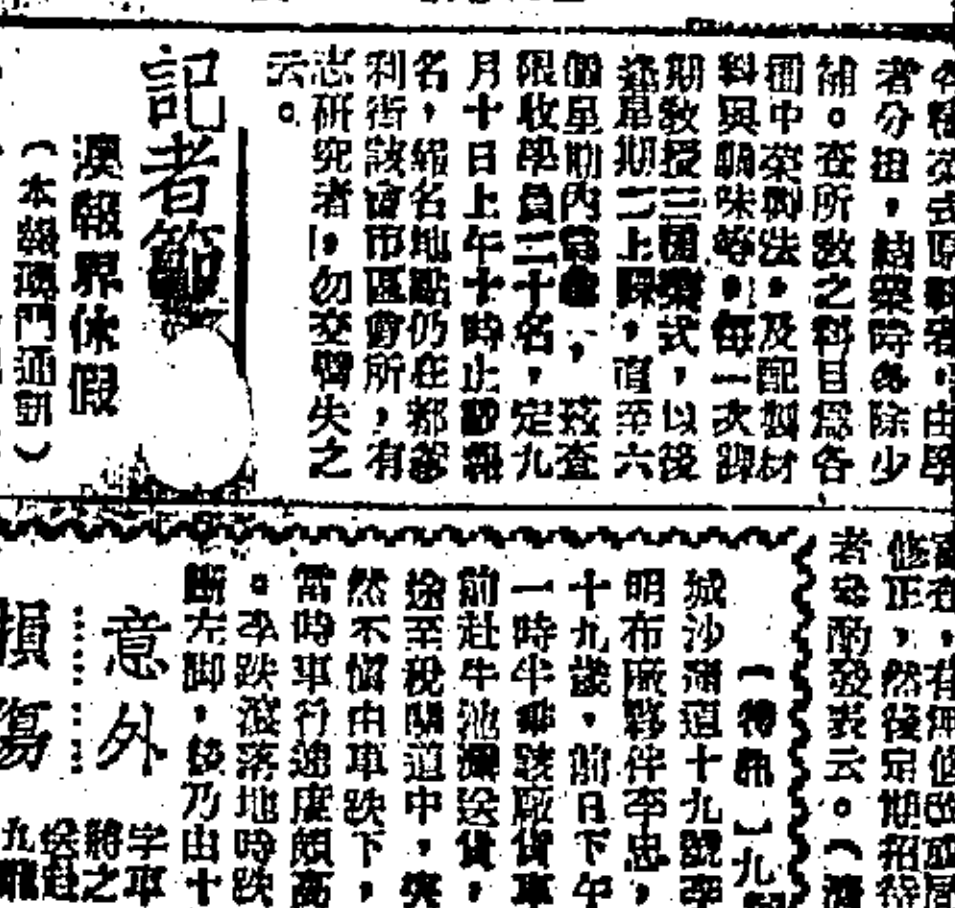 者分組，結業時各除少
補。查所教之科目爲各
國中菜製法，及配製材
料與調味等，每一次課
期教授三國樂式，以後
逢星期二上課，直至六
個星期內　，茲查
限收學員二十名，定九
月十日上午十時止截報
名，報名地點仍在都爹
利街該會市區會所，有
志研究者，勿交臂失之
云。
記者節
澳報界休假
（本報澳門通訊）
修正，然後定期招
者參酌發表云。（
（特訊）九
城沙浦道十九號李
明布廠夥伴李忠，
十九歲，前日下午
一時半乘該廠貨車
前赴牛池灣送貨，
途至稅關道中，突
然不慎由車跌下，
當時車行速度頗高
。李跌滾落地時跌
斷左脚，後乃由十
字車
將之
送赴
九龍
意外
損傷